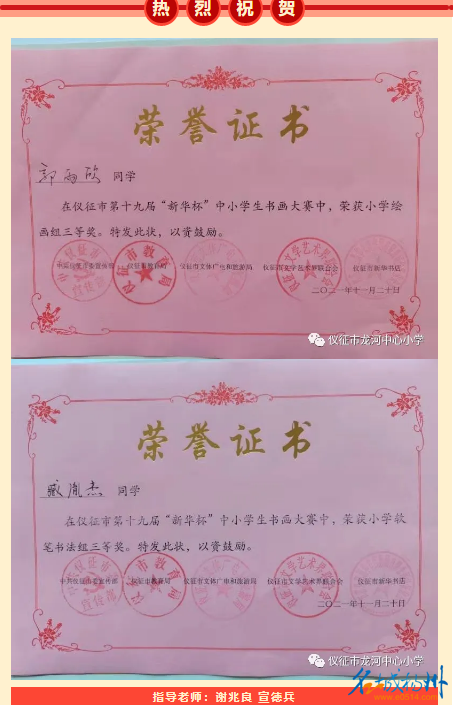 热烈祝贺
荣誉证书
郭雨欣 同学
在仪征市第十九届“新华杯”中小学生书画大赛中，荣获小学绘
画组三等奖。特发此状，以资鼓励。
中共仪征市委宣传部 仪征市教育局 仪征市文体广电和旅游局 仪征市文学艺术界联合会 仪征市新华书店
二〇二一年十一月二十日
仪征市龙河中心小学
荣誉证书
臧胤杰 同学
在仪征市第十九届“新华杯”中小学生书画大赛中，荣获小学软
笔书法组三等奖。特发此状，以资鼓励。
中共仪征市委宣传部 仪征市教育局 仪征市文体广电和旅游局 仪征市文学艺术界联合会 仪征市新华书店
二〇二一年十一月二十日
仪征市龙河中心小学
名城扬州
www.yz0514.com
指导老师：谢兆良 宣德兵